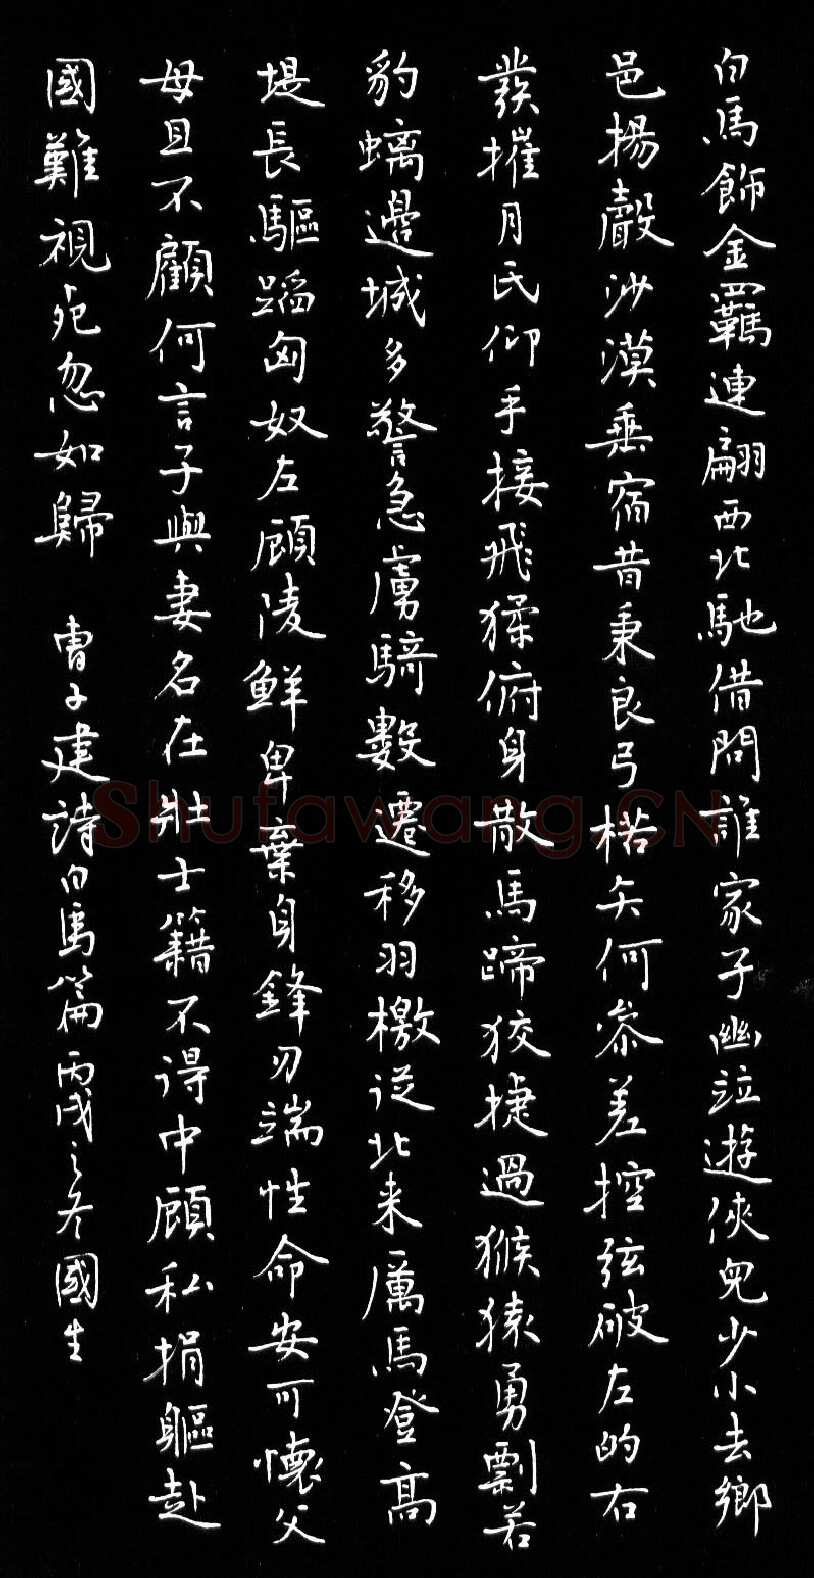 白馬飾金羈連翩西北馳借問誰家子幽竝遊俠兒少小去鄉
邑揚聲沙漠垂宿昔秉良弓楛矢何參差控弦破左的右
發摧月氏仰手接飛猱俯身散馬蹄狡捷過猴猿勇剽若
豹螭邊城多警急虜騎數遷移羽檄從北来厲馬登高
堤長驅蹈匈奴左顧陵鮮卑棄身鋒刃端性命安可懷父
母且不顧何言子與妻名在壯士籍不得中顧私捐軀赴
國難視死忽如歸 曹子建詩白馬篇丙戌之冬國生
Shufawang.CN